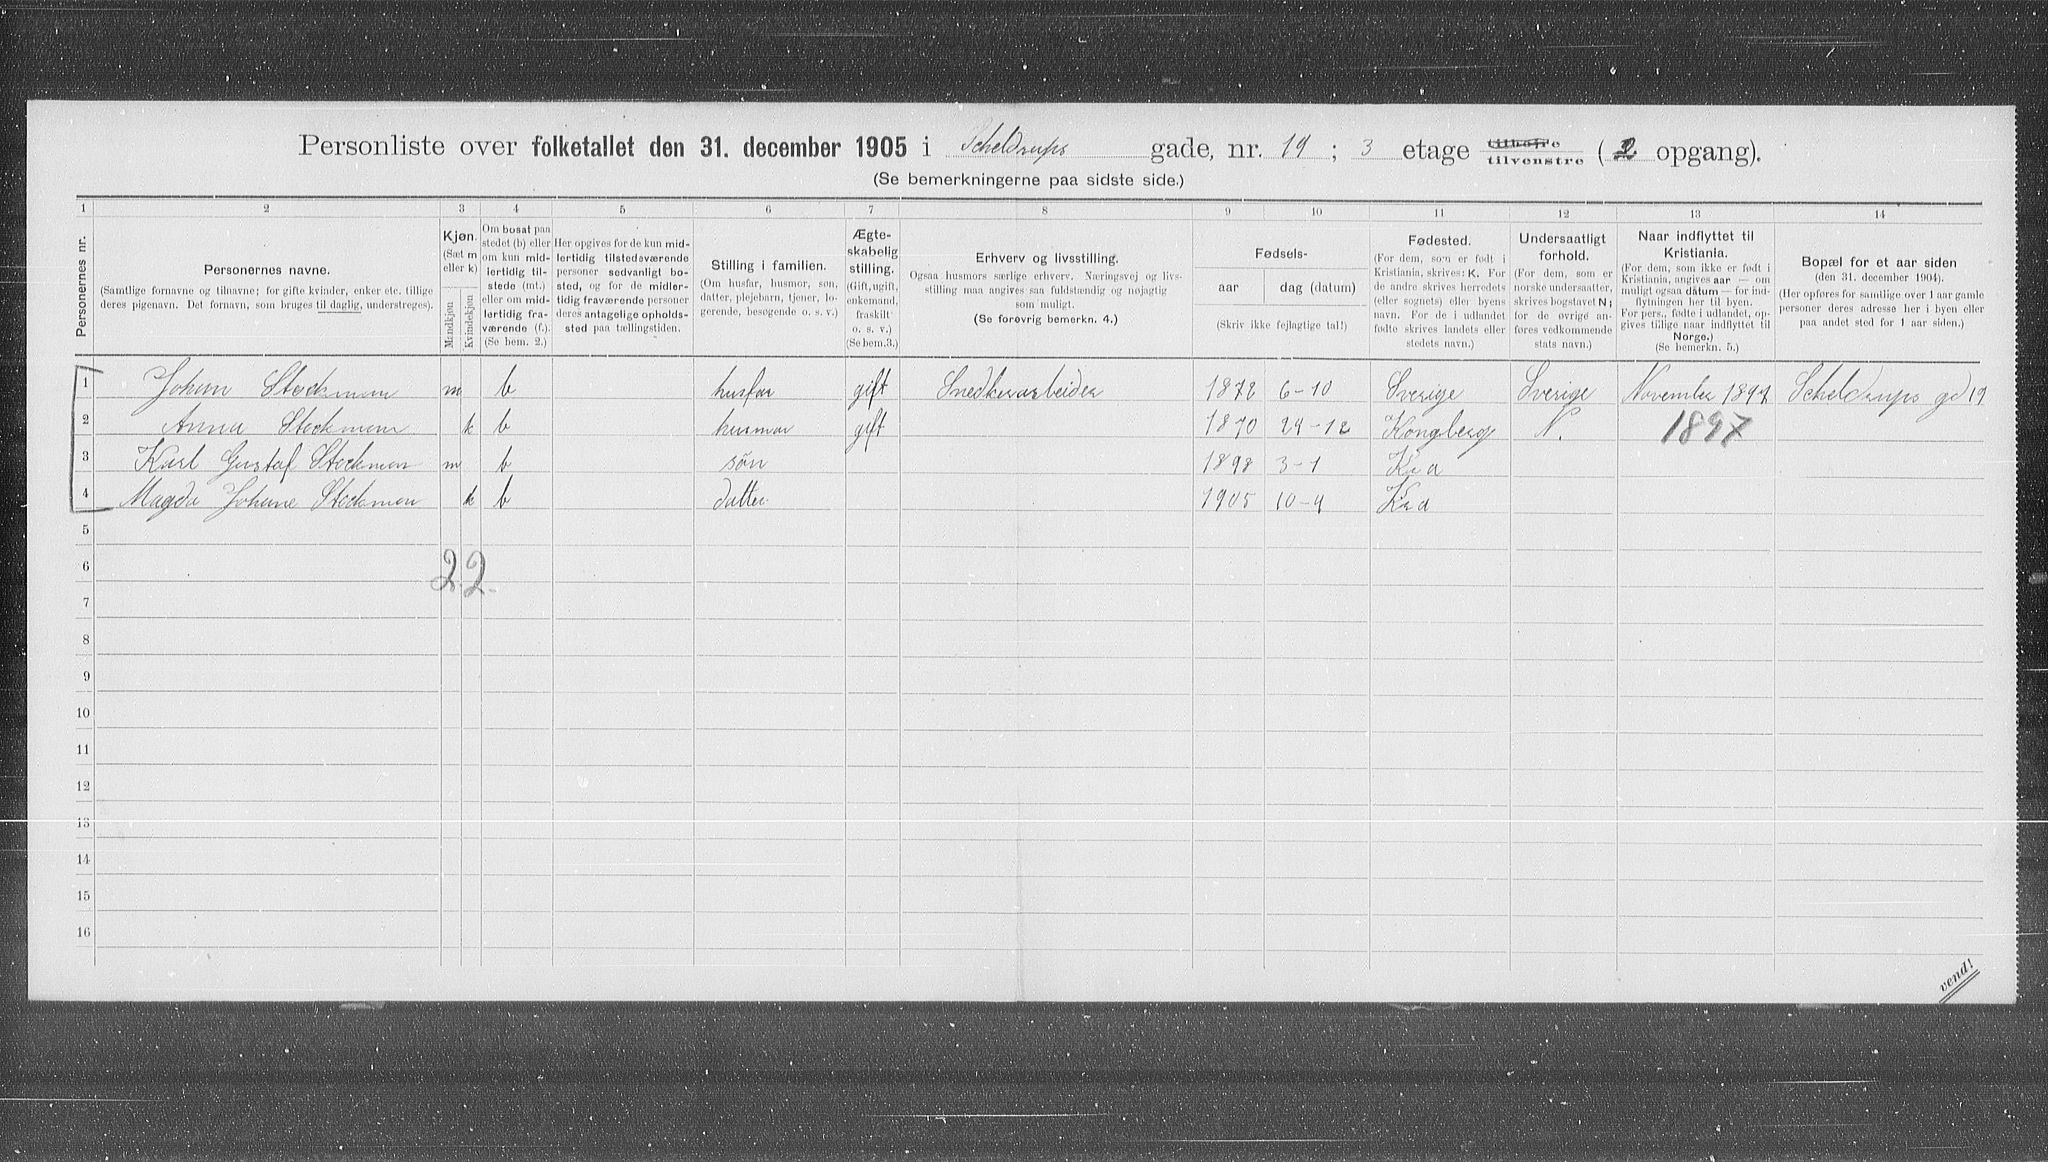 Personliste over folketallet den 31. december 1905 i Scheldrups gade, nr. 19 ; 3 etage tilhøire tilvenstre (2 opgang).
(Se bemerkningerne paa sidste side.)
1 2 3 4 5 6 7 8 9 10 11 12 13 14
Personernes nr.
Personernes navne.
(Samtlige fornavne og tilnavne; for gifte kvinder, enker etc. tillige
deres pigenavn. Det fornavn, som bruges til daglig, understreges).
Kjøn.
(Sæt m
eller k)
Mandkjøn
Kvindekjøn
Om bosat paa
stedet (b) eller
om kun mid-
lertidig til-
stede (mt.)
eller om mid-
lertidig fra-
værende (f.).
(Se bem. 2.)
Her opgives for de kun mid-
lertidig tilstedeværende
personer sedvanlig bo-
sted, og for de midler-
tidig fraværende personer
deres antagelige opholds-
sted paa tællingstiden.
Stilling i familien.
(Om husfar, husmor, søn,
datter, plejebarn, tjener, lo-
gerende, besøgende o. s. v.)
Ægte-
skabelig
stilling.
(Gift, ugift,
enkemand,
fraskilt
o. s. v.)
(Se bem.3.)
Erhverv og livsstilling.
Ogsaa husmors særlige erhverv. Næringsvej og livs-
stilling maa angives saa fuldstændig og nøjagtig
som muligt.
(Se forøvrig bemerkn. 4.)
Fødsels-
aar dag (datum)
(Skriv ikke fejlagtige tal!)
Fødested.
(For dem, som er født i
Kristiania, skrives: K. For
de andre skrives herredets
(eller sognets) eller byens
navn. For de i udlandet
fødte skrives landets eller
stedets navn.)
Undersaatligt
forhold.
(For dem, som er
norske undersaatter,
skrives bogstavet N;
for de øvrige an-
føres vedkommende
stats navn.)
Naar indflyttet til
Kristiania.
(For dem, som ikke er født i
Kristiania, angives aar — om
muligt ogsaa datum — for ind-
flytningen her til byen.
For pers., fødte i udlandet, op-
gives tillige naar indflyttet til
Norge.)
(Se bemerkn. 5.)
Bopæl for et aar siden
(den 31. december 1904).
(Her opføres for samtlige over 1 aar gamle
personer deres adresse her i byen eller
paa andet sted for 1 aar siden.)
1 Johan Stockman m b husfar gift Snedkerarbeider 1872 6-10 Sverige Sverige November 1897 Scheldrups gd 19
2 Anna Stockman k b husmor gift 1870 29-12 Kongberg N. 1897
3 Karl Gustaf Stockman m b søn 1898 3-1 Kra
4 Magda Johane Stockman k b datter 1905 10-9 Kra
5
6 2 2.
7
8
9
10
11
12
13
14
15
16
vend!